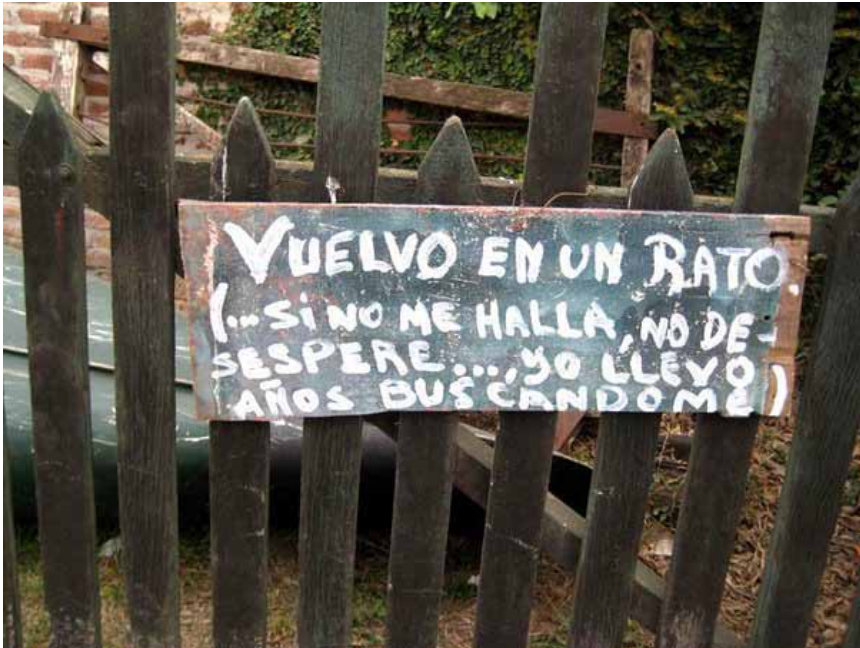 VUELVO EN UN RATO.
(...Si NO ME HALLA, NO DE-
SESPERE...,YO LLEVO
AÑOS BUSCANDOME)